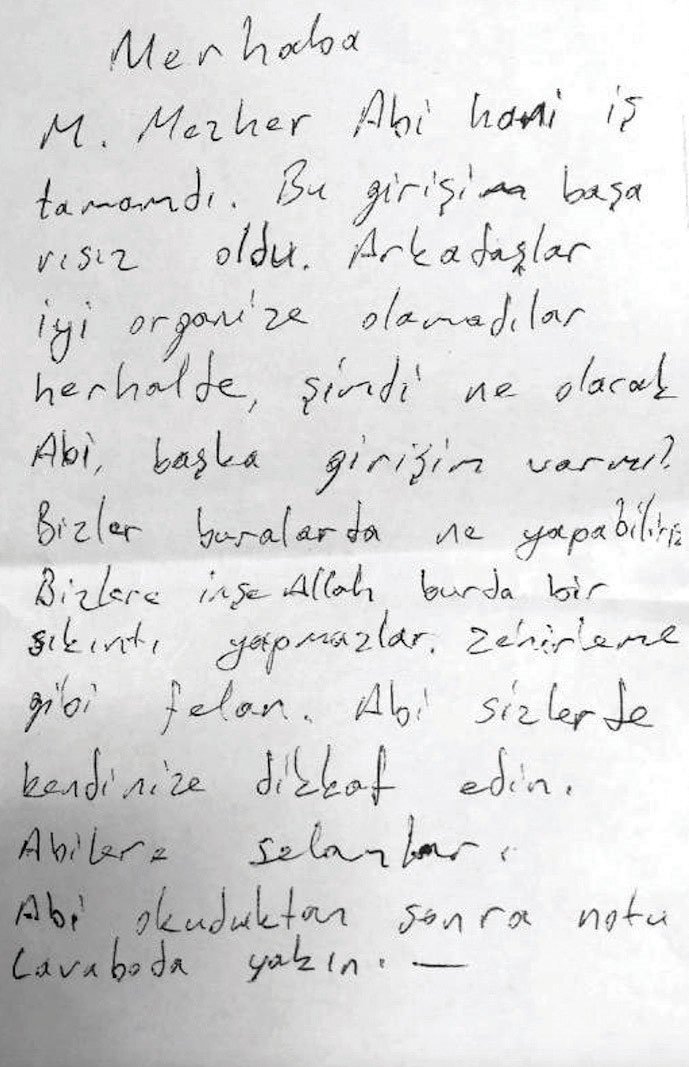 Merhaba
M. Mezher Abi hani iş
tamamdı. Bu girişim başa
rısız oldu. Arkadaşlar
iyi organize olamadılar
herhalde, şimdi ne olacak
Abi, başka girişim varmı?
Bizler buralarda ne yapabiliriz
Bizlere inşe Allah burda bir
sıkıntı yapmazlar. Zehirleme
gibi felan. Abi sizlerde
kendinize dikkat edin.
Abilere selamlar.
Abi okuduktan sonra notu
Lavaboda yakın. —